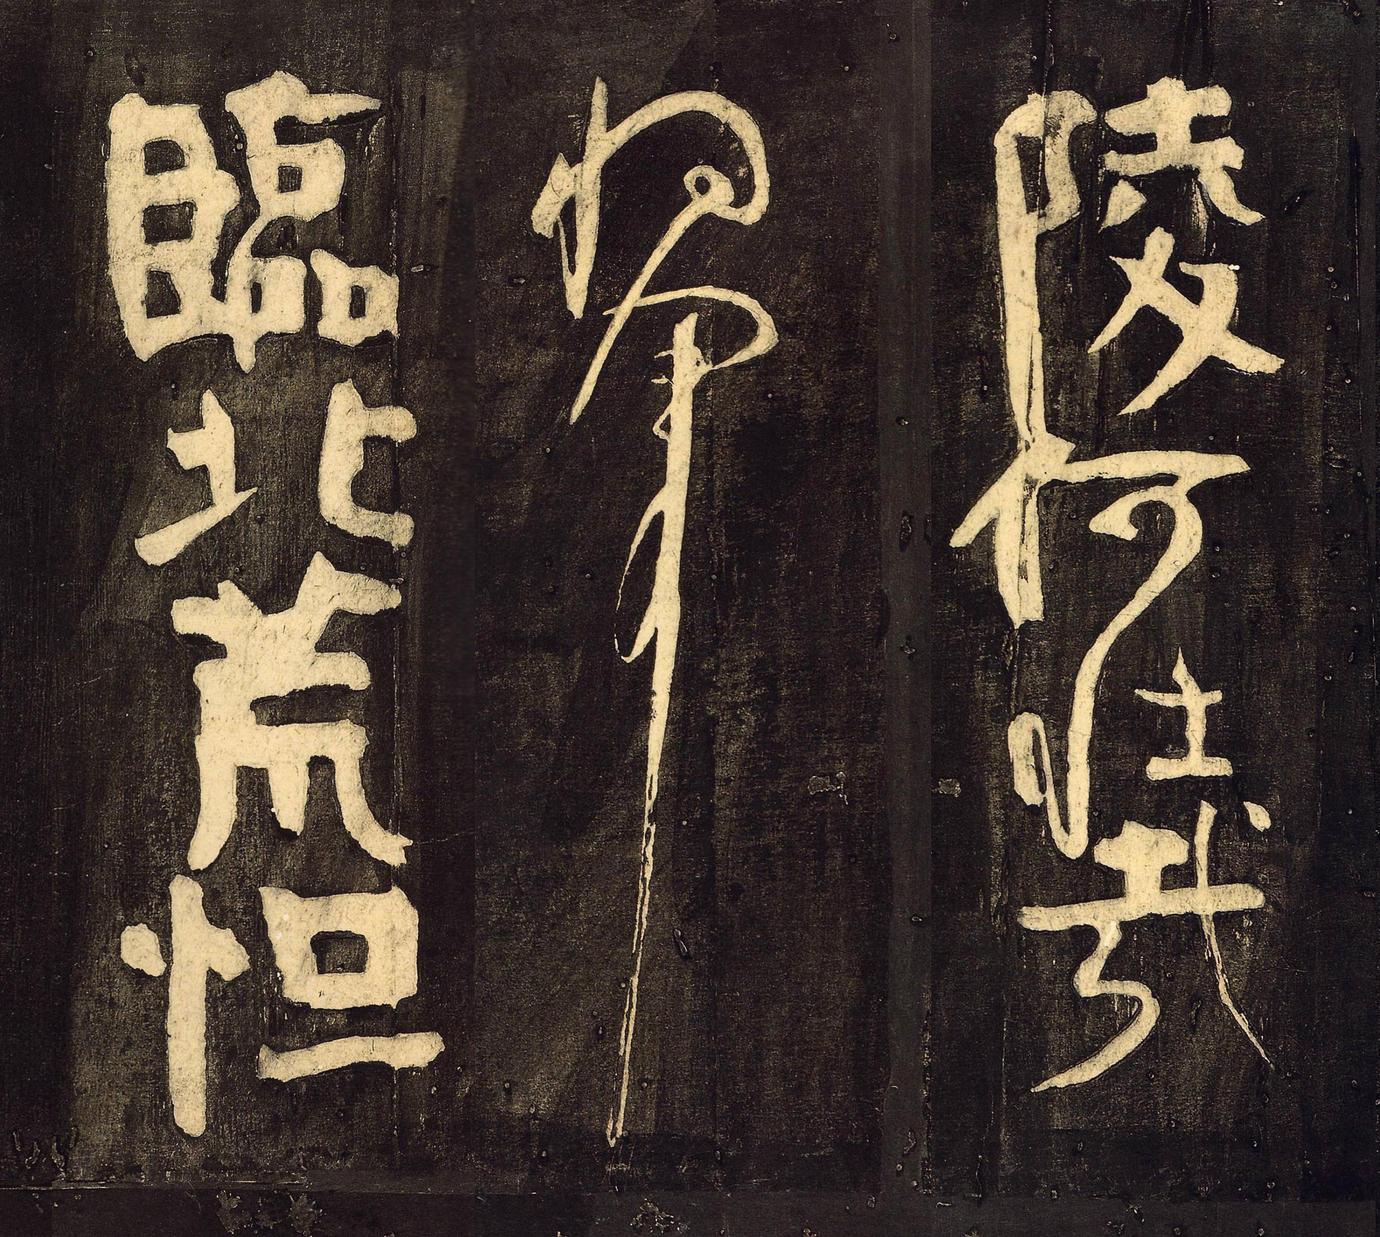 陵何壯哉
將軍
臨北荒恒